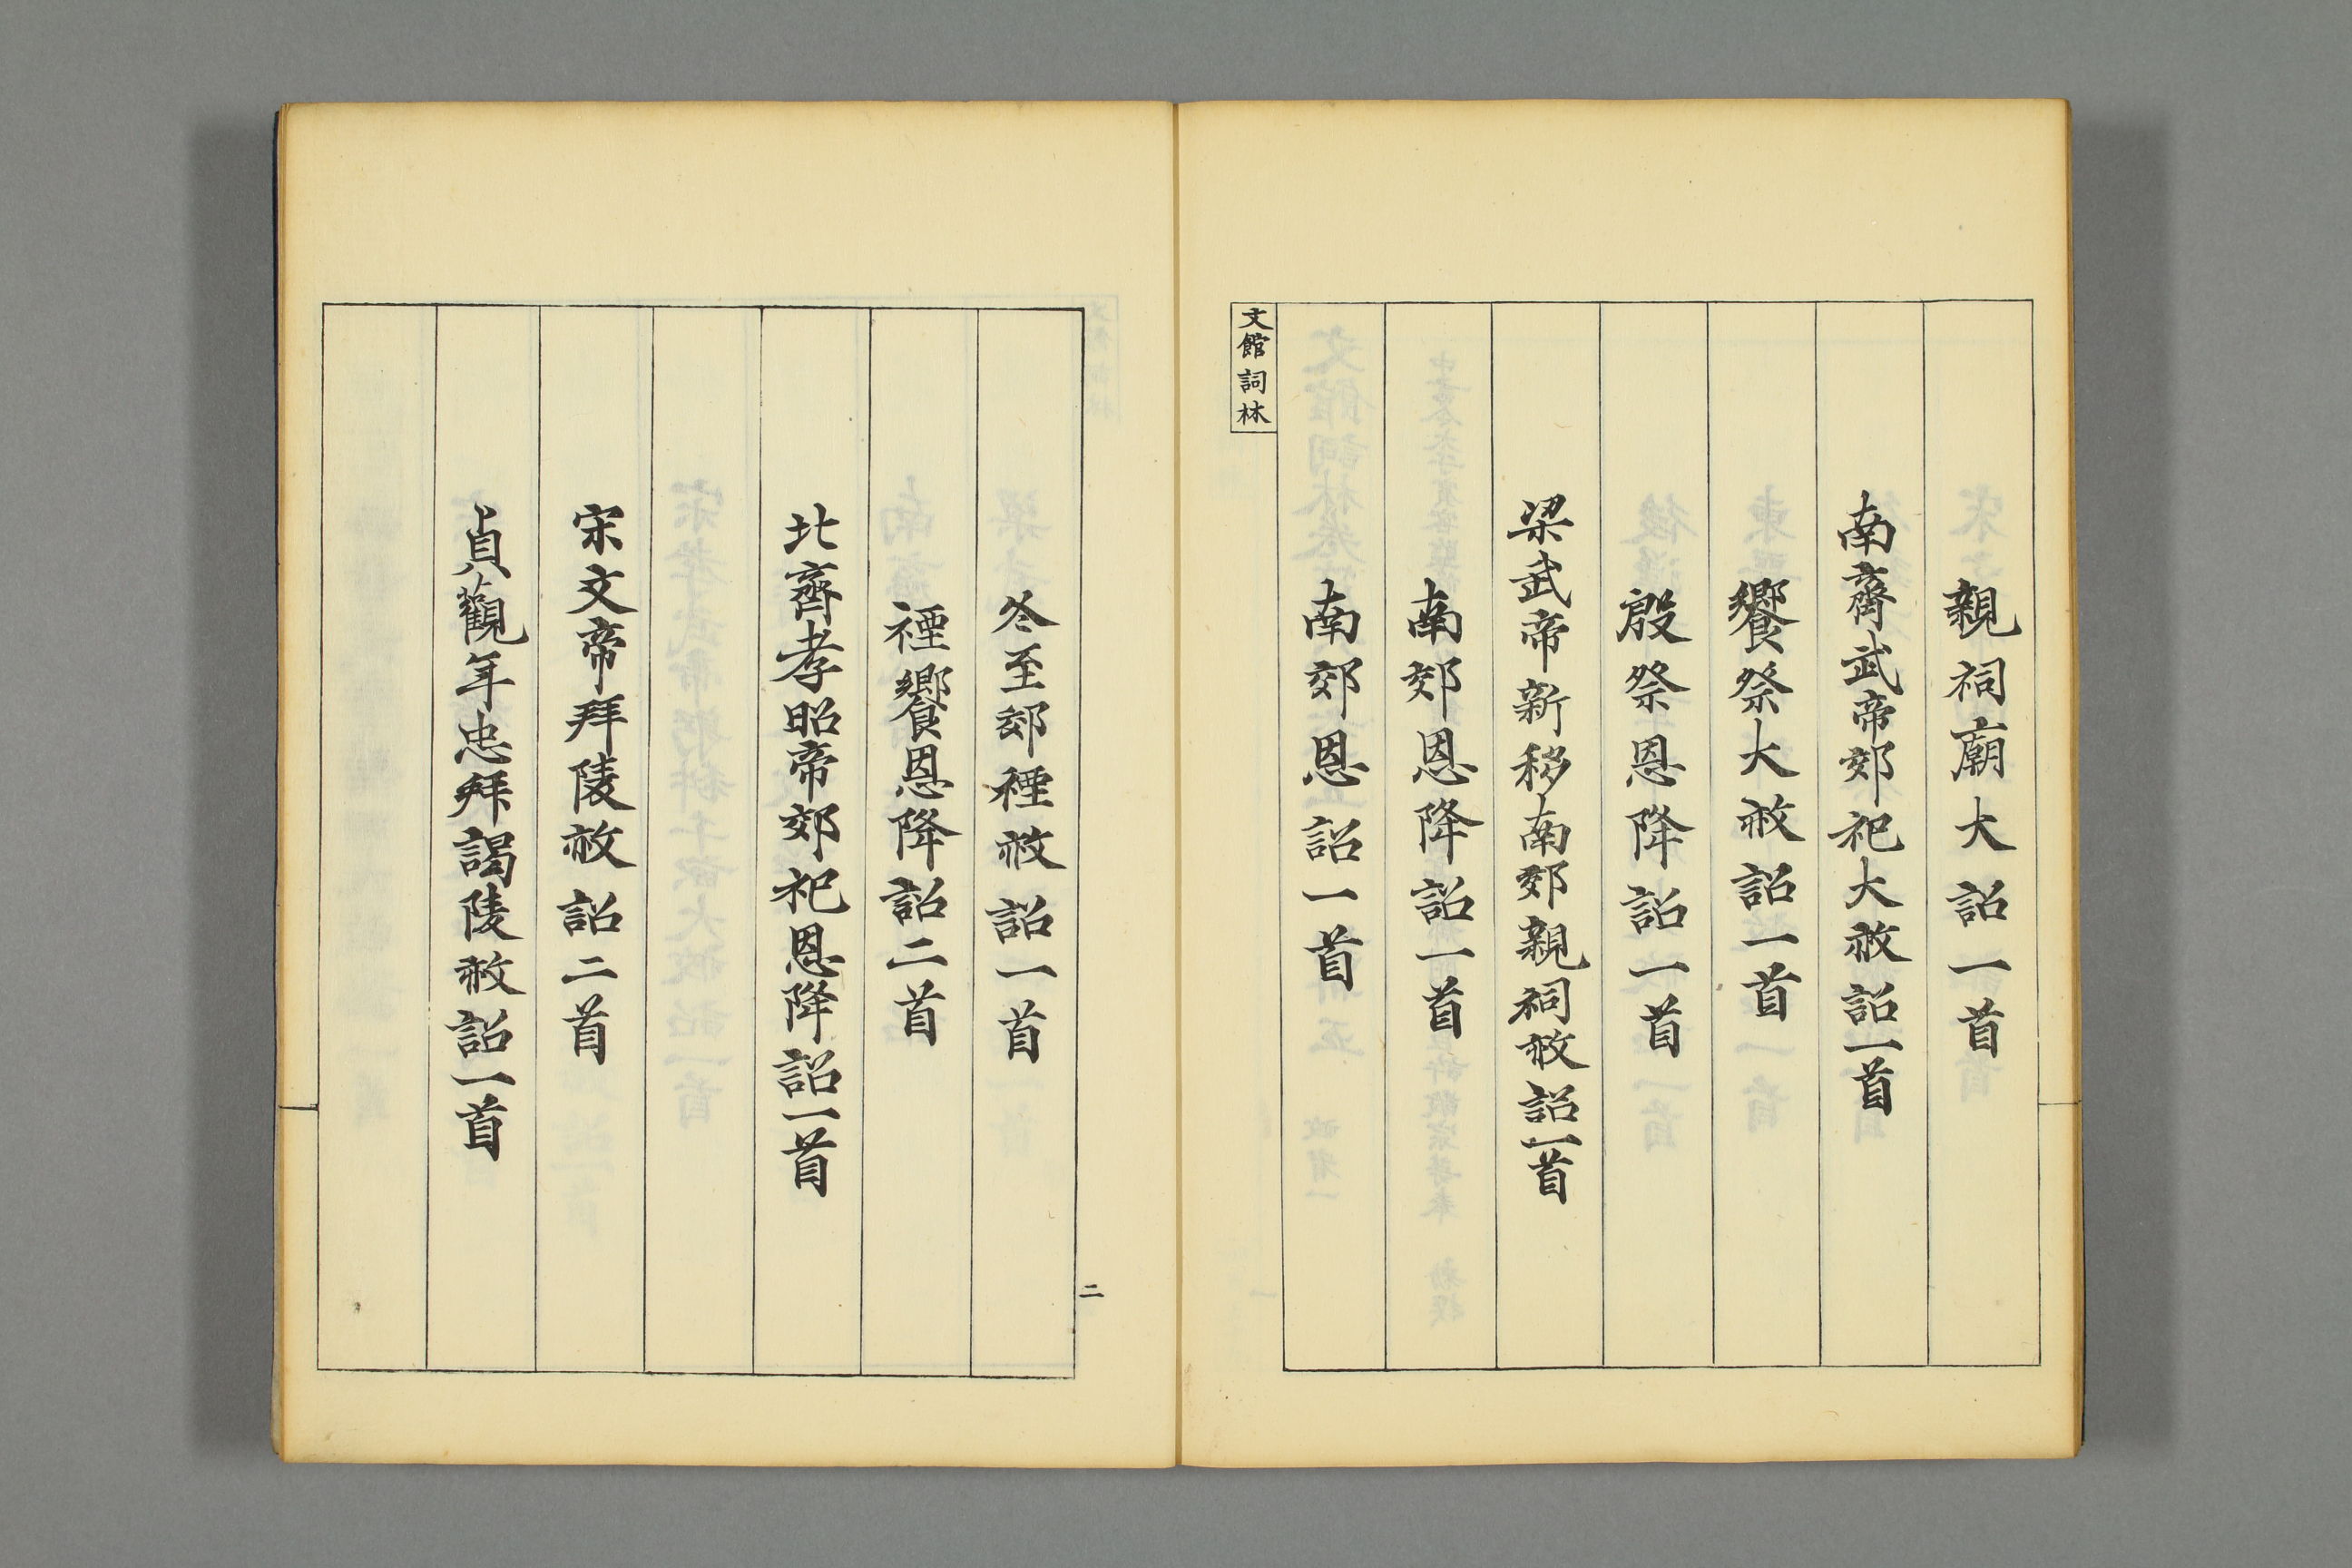 親祠廟大詔一首
南齊武帝郊祀大赦詔一首
饗祭大赦詔一首
殷祭恩降詔一首
梁武帝新移南郊親祠赦詔一首
南郊恩降詔一首
南郊恩詔一首
文館詞林
二
冬至郊禋赦詔一首
禋饗恩降詔二首
北齊孝昭帝郊祀恩降詔一首
宋文帝拜陵赦詔二首
貞觀年忠拜謁陵赦詔一首